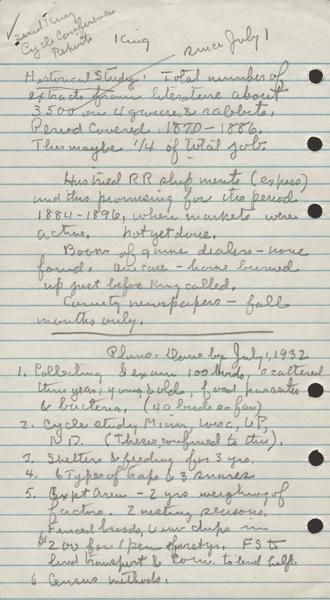 ✓ send King
Cycle Conference
Reports
King
since July 1
Historical Study: Total number of
extracts from literature about
3500 on grouse & rabbits.
Period Covered 1870-1886.
This maybe 1/4 of total job.
Has tried RR shipments (expess)
and this promising for the period
1884-1896, when markets were
active. Not yet done.
Books of game dealers - none
found. One case - home burned
up just before King called.
County newspapers - fall
months only.
Plans: Done by July 1, 1932
1. Collecting & exam 100 birds, scattered
thru years, young & olds, food parasites
& bacteria. (40 birds so far)
2. Cycle study Minn, Wisc, UP,
ND. (These confined to this).
3. Shelters & feeding for 3 yrs.
4. 6 types of traps & 3 snares
5. Expt Area - 2 yrs weighing of
factors. 2 nesting seasons.
Fenced broods, in
$200 for 1 pen. FS to
lend transport & Com. to lend help.
6 Census methods.